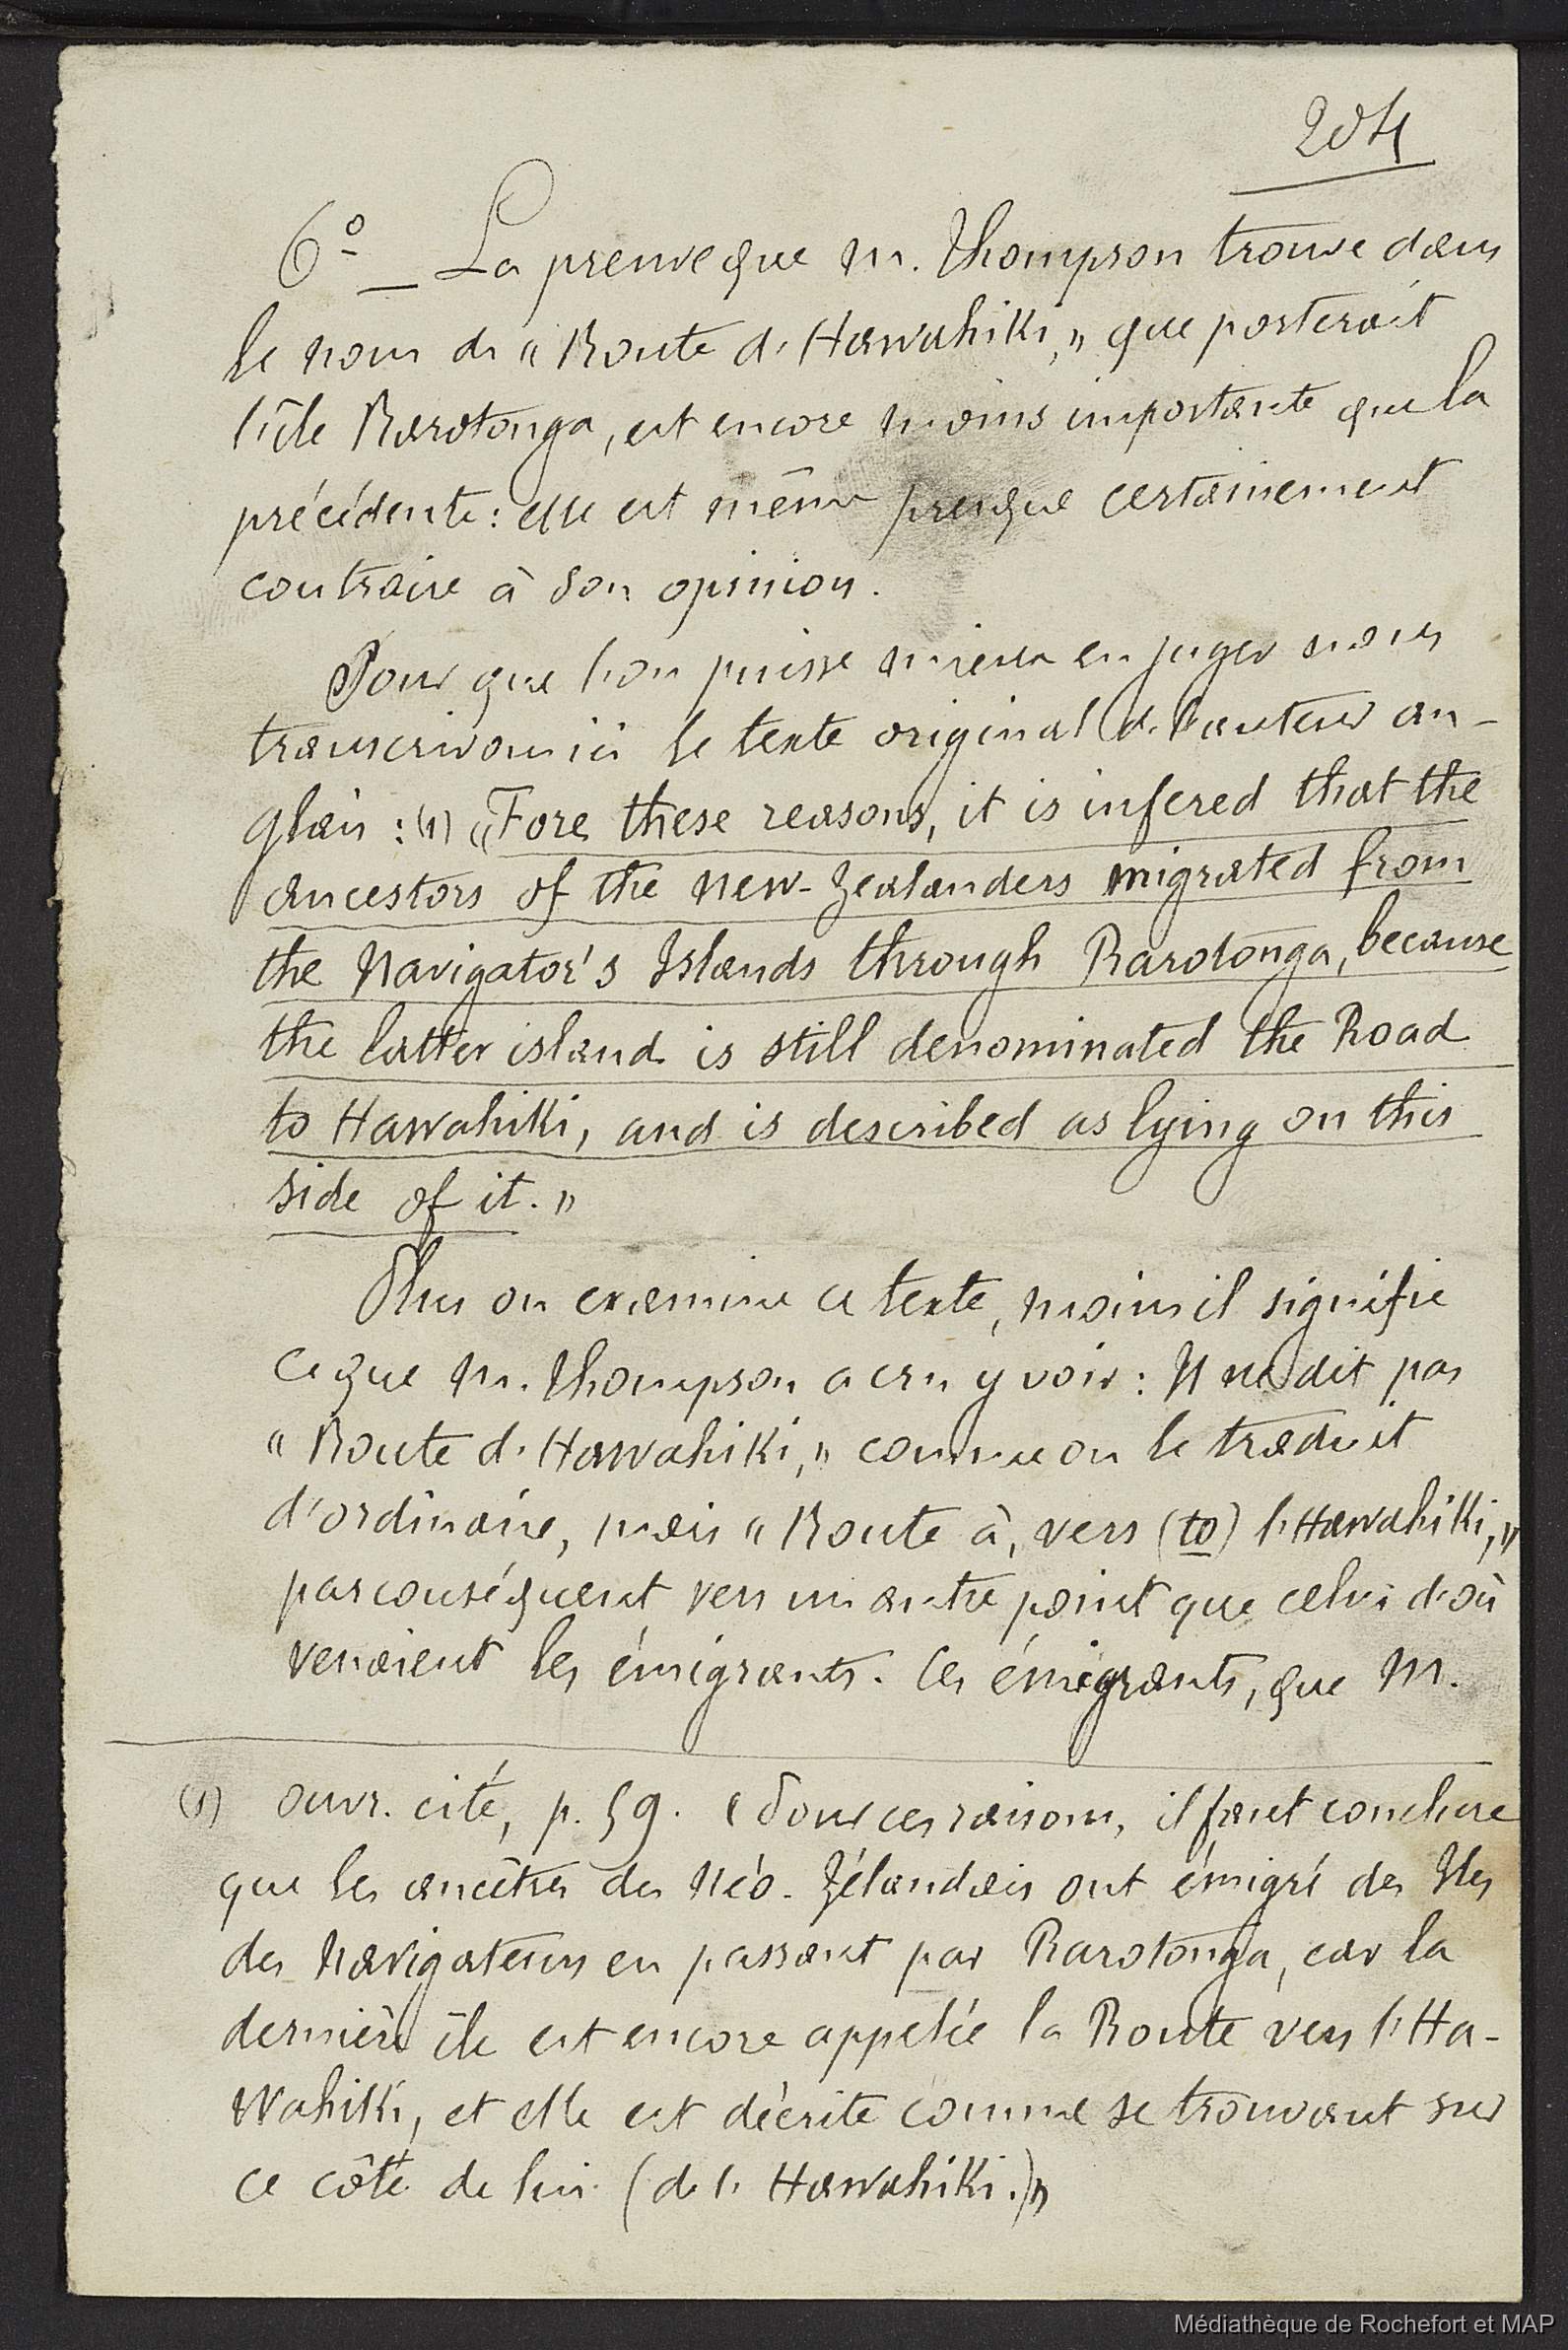 204
6º — La preuve que M. Thompson trouve dans
le nom de « Route d'Hawahiki, » que porterait
l'île Rarotonga, est encore moins importante que la
précédente : elle est même presque certainement
contraire à son opinion.
Pour que l'on puisse mieux en juger nous
transcrivons ici le texte original de l'auteur an-
glais : (1) « Fore these reasons, it is infered that the
ancestors of the New-Zealanders migrated from
the Navigator's Islands through Rarotonga, because
the latter island is still denominated the Road
to Hawahiki, and is described as lying on this
side of it. »
Plus on examine ce texte, moins il signifie
ce que M. Thompson a cru y voir : Il ne dit pas
« Route d'Hawahiki, » comme on le traduit
d'ordinaire, mais « Route à, vers (to) l'Hawahiki, »
par conséquent vers un autre point que celui d'où
venaient les émigrants. Ces émigrants, que M.
(1) Ouvr. cité, p. 59. « Pour ces raisons, il faut conclure
que les ancêtres des Néo-Zélandais ont émigré des Iles
des Navigateurs en passant par Rarotonga, car la
dernière île est encore appelée la Route vers l'Ha-
wahiki, et elle est décrite comme se trouvant sur
ce côté de lui (de l'Hawahiki.) »
Médiathèque de Rochefort et MAP